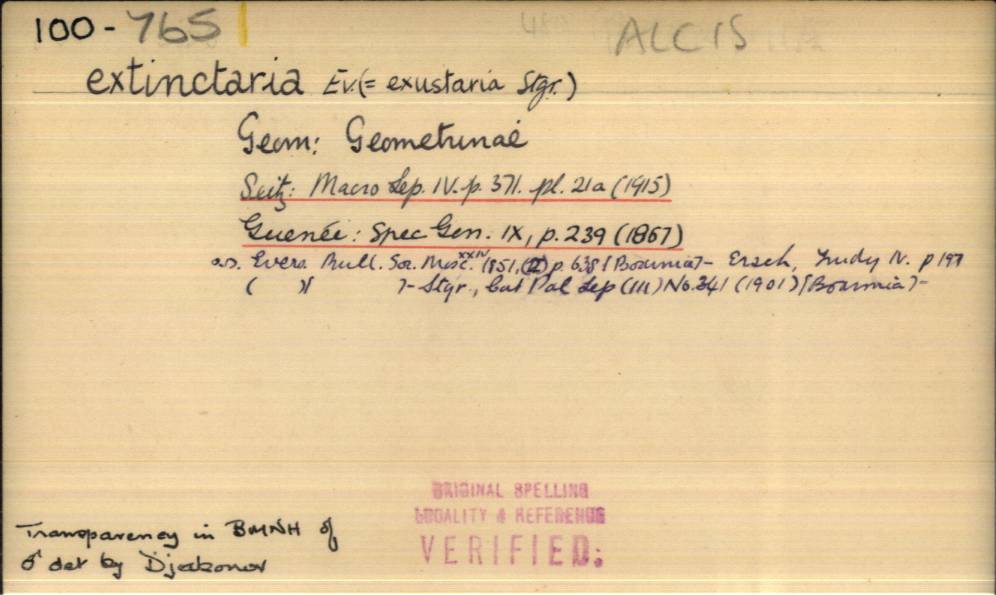 100-765
ALCIS
extinctaria Ev. (= exustaria Stgr.)
Geom: Geometrinae
Seitz: Macro Lep. IV. p. 371. pl. 21a (1915)
Guenée: Spec Gen. IX, p. 239 (1867)
as. Evers. Bull. Soc. Mosc. XXIV 1851, (2) p. 638 [Boarmia] - Ersch, Trudy IV. p 197
( )[ ] - Stgr., Cat Pal Lep (III) No. 341 (1901) [Boarmia] -
ORIGINAL SPELLING
LOCALITY & REFERENCE
VERIFIED:
Transparency in BMNH of
♂ det by Djakonov